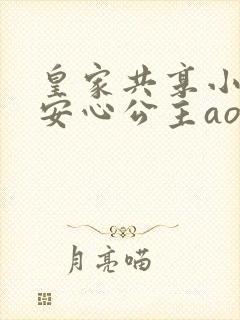 皇家共享小
安心公主ao
月亮喵